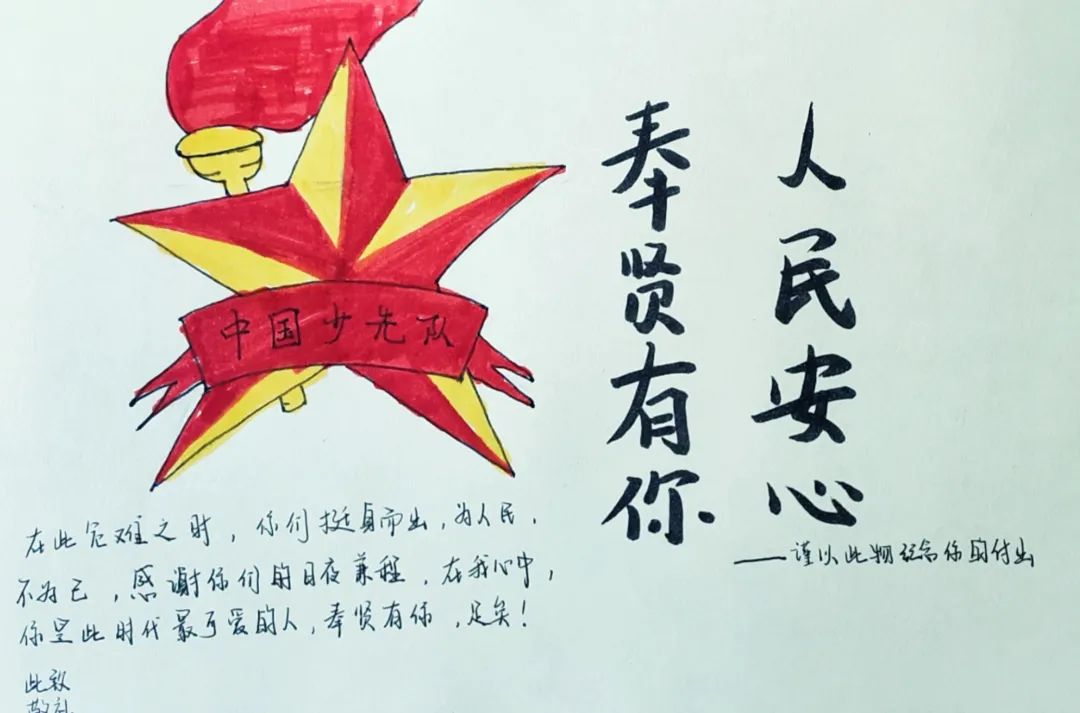 中国少先队
人民安心
奉贤有你
——谨以此物纪念你的付出
在此危难之时，你们挺身而出，为人民，
不为己，感谢你们的日夜兼程，在我心中，
你是此时代最可爱的人，奉贤有你，足矣！
此致
敬礼